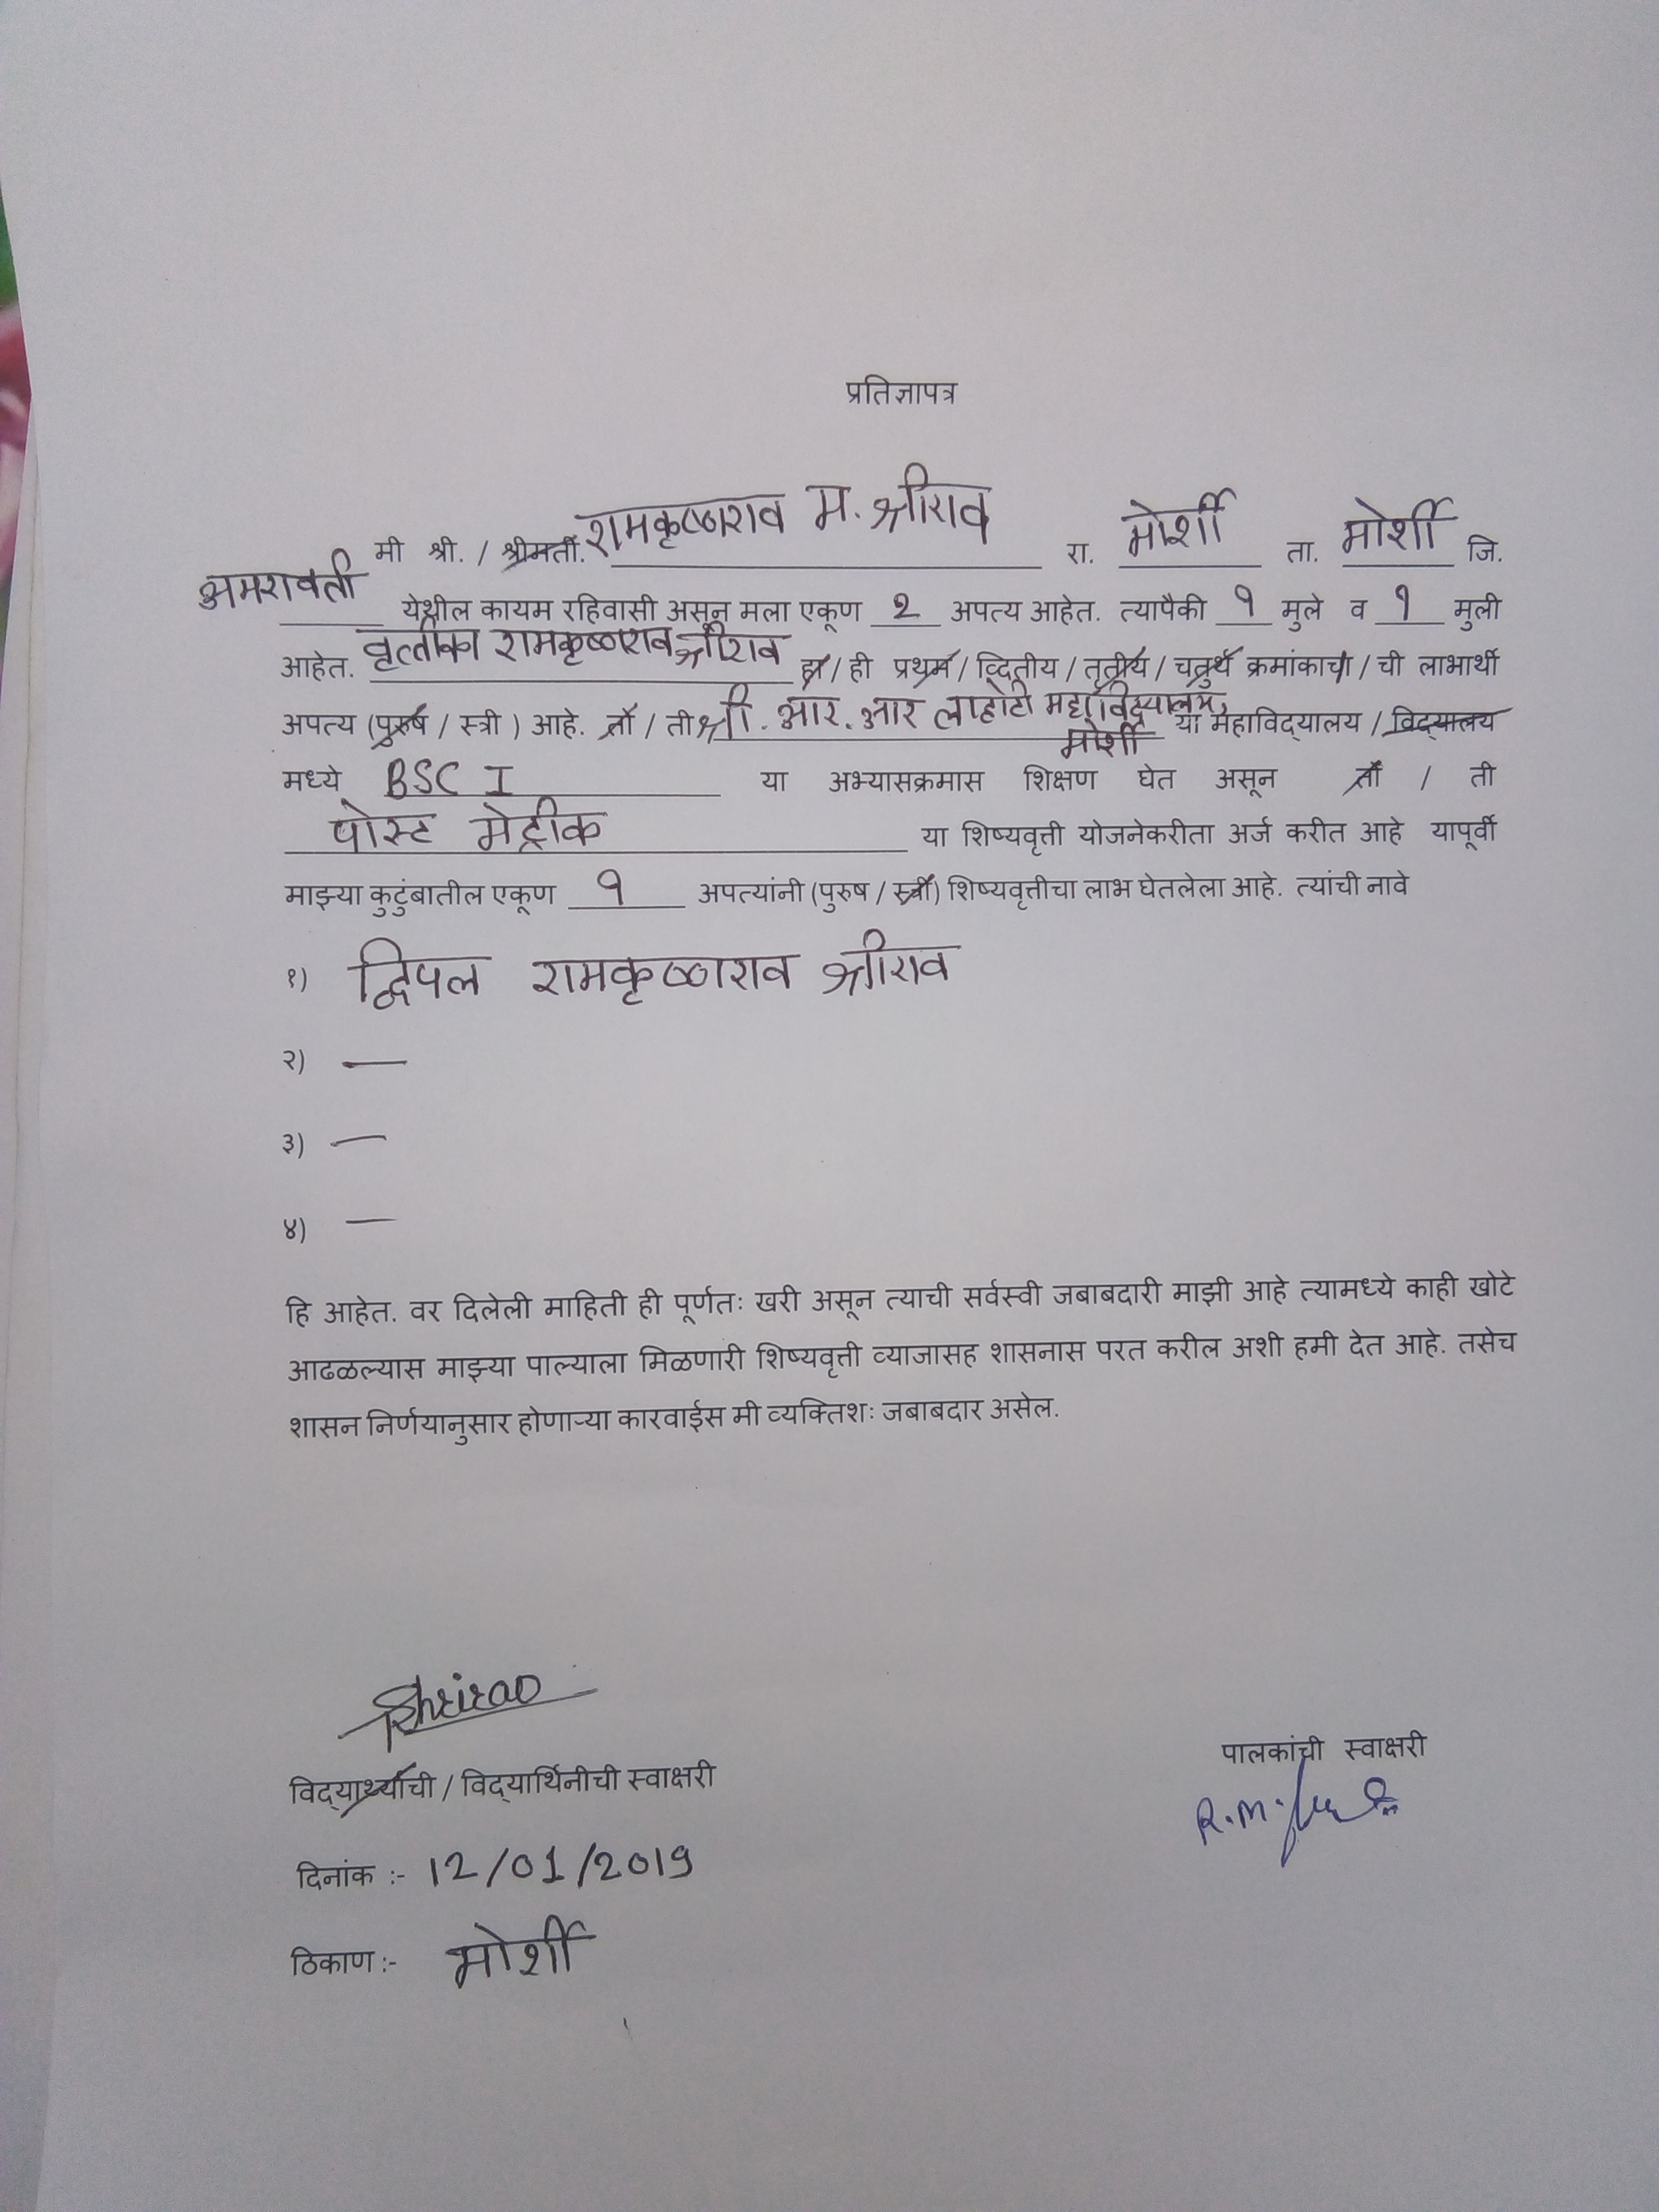 प्रतिज्ञापत्र
मी श्री. / श्रीमती. रामकृष्णराव म. श्रीराव रा. मोर्शी ता. मोर्शी जि.
अमरावती येथील कायम रहिवासी असून मला एकूण २ अपत्य आहेत. त्यापैकी १ मुले व १ मुली
आहेत. वृत्तीका रामकृष्णराव श्रीराव हा / ही प्रथम / व्दितीय / तृतीय / चतुर्थ क्रमांकाचा / ची लाभार्थी
अपत्य (पुरुष / स्त्री ) आहे. तो / ती श्री. आर. आर लाहोटी महाविद्यालय, मोर्शी या महाविद्यालय / विद्यालय
मध्ये BSC I या अभ्यासक्रमास शिक्षण घेत असून तो / ती
पोस्ट मेट्रीक या शिष्यवृत्ती योजनेकरीता अर्ज करीत आहे यापूर्वी
माझ्या कुटुंबातील एकूण १ अपत्यांनी (पुरुष / स्त्री) शिष्यवृत्तीचा लाभ घेतलेला आहे. त्यांची नावे
१) द्विपल रामकृष्णराव श्रीराव
२) —
३) —
४) —
हि आहेत. वर दिलेली माहिती ही पूर्णतः खरी असून त्याची सर्वस्वी जबाबदारी माझी आहे त्यामध्ये काही खोटे
आढळल्यास माझ्या पाल्याला मिळणारी शिष्यवृत्ती व्याजासह शासनास परत करील अशी हमी देत आहे. तसेच
शासन निर्णयानुसार होणाऱ्या कारवाईस मी व्यक्तिशः जबाबदार असेल.
Shrirao
विद्यार्थ्याची / विद्यार्थिनीची स्वाक्षरी
पालकांची स्वाक्षरी
R.M.
दिनांक :- 12/01/2019
ठिकाण :- मोर्शी